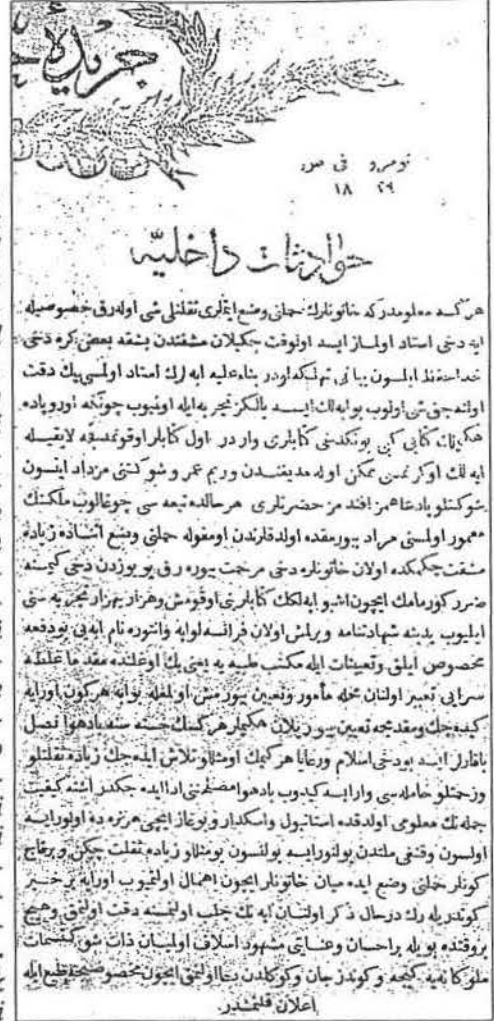 جريدۀ
نومرو فى صور
١٨ ٢٩
حوادثات داخليه
هركسه معلومدركه خاتونلرك حملنى وضع ايتملرى ثقلتلى شى اوله‌رق خصوصيله
ايه دخى استاد اولماز ايسه اولوقت چكيلان مشقتدن بشقه بعضى كره دخى
خدا ايلسون يبانى تهلكه اودر بناء عليه ابه‌لرك استاد اولمسى پك دقت
اولنه‌جق شى اولوب بو ابه‌لك ايسه يالكز تجربه ايله اولميوب چونكه اوروپاده
حكيملك كتابى كبى بونك دخى كتابلرى واردر اول كتابلر اوقونمدقچه لايقيله
ابه‌لك اوكرنمسى ممكن اوله‌مديغندن وربم عمر و شوكتنى مزداد ايلسون
شوكتلو پادشاهمز افندمز حضرتلرى هر حالده تبعه سى چوغالوب ملكنك
معمور اولمسنى مراد بيورمقده اولدقلرندن اومقوله حملنى وضع اثناده زياده
مشقت چكمكده اولان خاتونلره دخى مرحمت بيوره‌رق بو يوزدن دخى كيمسه
ضرر كورمامك ايچون اشبو ابه‌لكك كتابلرينى اوقومش و هزار تجربه سنى
ايليوب يدينه شهادتنامه ويرلمش اولان فرانسه‌لو نام ابه‌يى بودفعه
مخصوص ايلق و تعيينات ايله مكتب طبيه يه يعنى بك اوغلنده مقدما غلطه
سرايى تعبير اولنان محله مأمور و تعيين بيورمش اولمغله بو ابه هركون اورايه
كيده‌جك و مقدمجه تعيين بيوريلان حكيملر هركسك خسته سنه بادهوا نصل
باقارلر ايسه بودخى اسلام ورعايا هركيمك اومثللو تلاش ايده‌جك زياده ثقلتلو
وزحمتلو حامله‌سى وار ايسه كيدوب بادهوا ادا ايده‌جكدر اشته كيفيت
جمله‌نك معلومى اولدقده استانبول و اسكدار و بوغاز ايچى هر نره‌ده اولور ايسه
اولسون و قنغى ملتدن بولنور ايسه بولنسون بومثللو زياده ثقلت چكن و برقاچ
كونلر حملنى وضع ايده‌ميان خاتونلر ايچون اهمال اولنميوب اورايه بر خبر
كوندريله‌رك درحال ذكر اولنان ابه‌نك جلب اولنمسنه دقت اولنمق و هيچ
بروقتده بويله بر احسان و عنايتى مشهود اسلاف اولميان ذات شوكتسمات
ملوكانه‌يه كيجه و كوندز جان و كوكلدن دعا اولنمق ايچون مخصوص طبع ايله
اعلان قلنمشدر